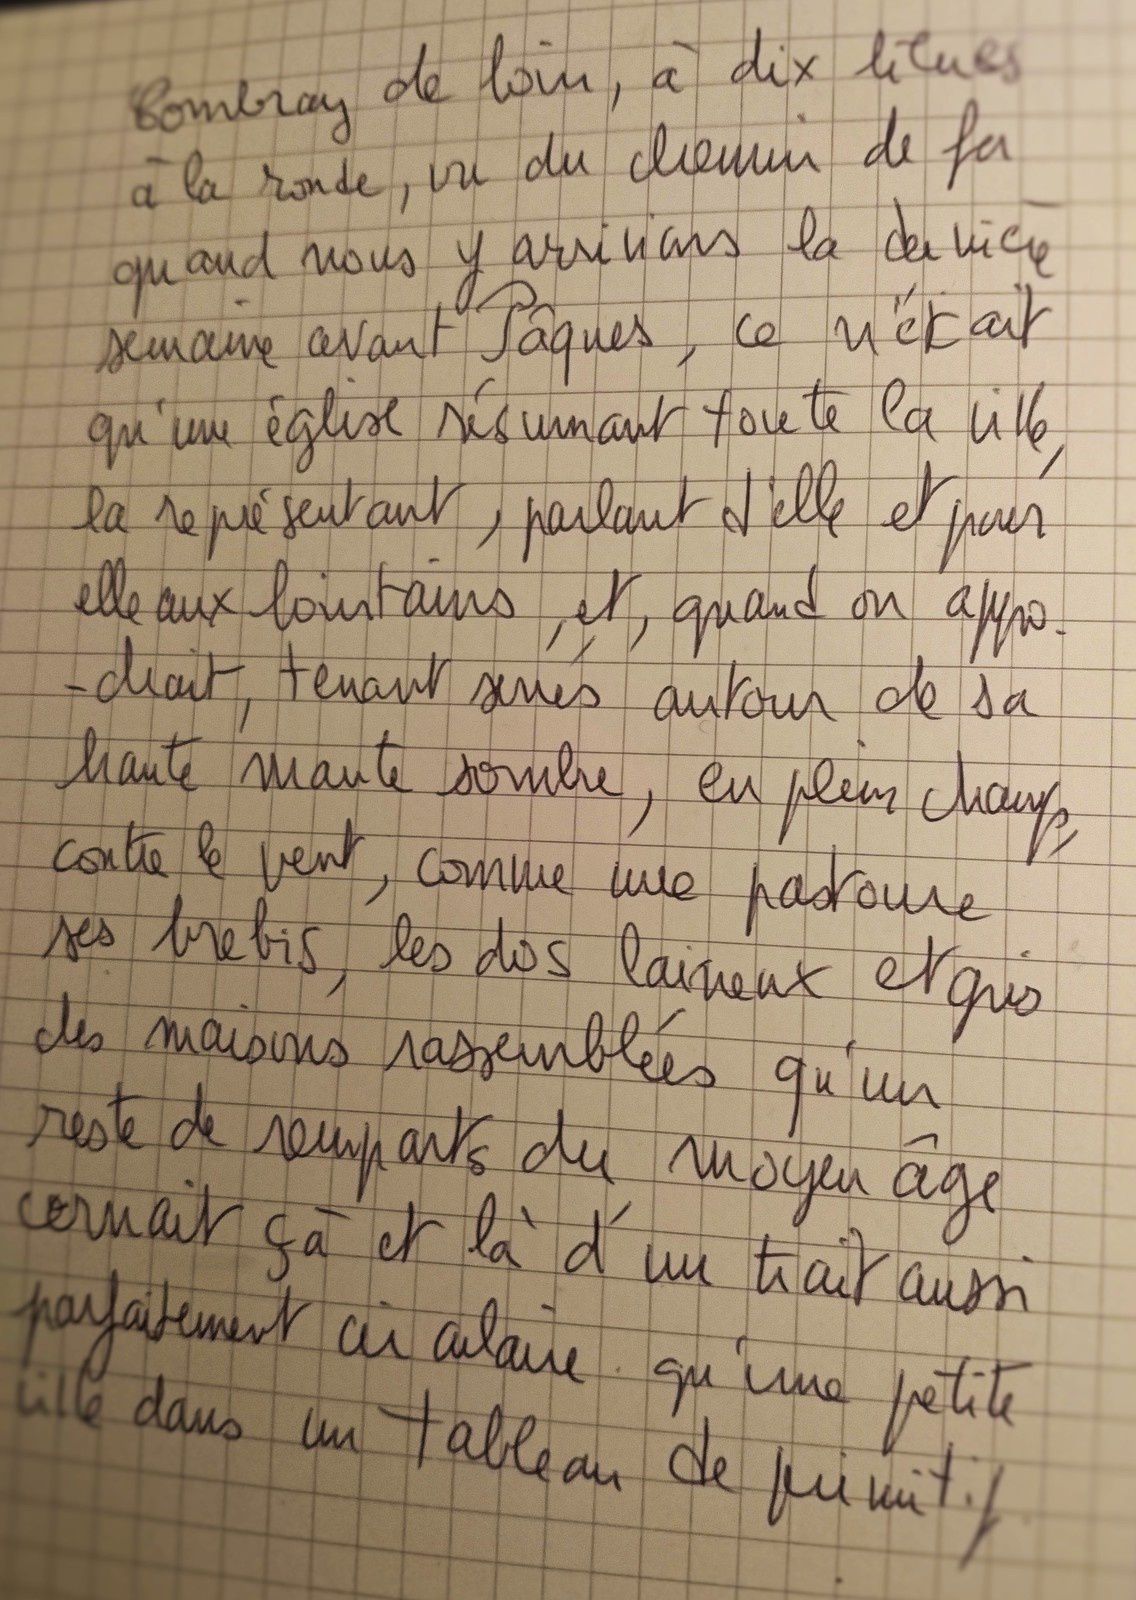 Combray de loin, à dix lieues
à la ronde, vu du chemin de fer
quand nous y arrivions la dernière
semaine avant Pâques, ce n'était
qu'une église résumant toute la ville,
la représentant, parlant d'elle et pour
elle aux lointains, et, quand on appro-
-chait, tenant serrés autour de sa
haute mante sombre, en plein champ,
contre le vent, comme une pastoure
ses brebis, les dos laineux et gris
des maisons rassemblées qu'un
reste de remparts du moyen âge
cernait çà et là d'un trait aussi
parfaitement circulaire qu'une petite
ville dans un tableau de primitif